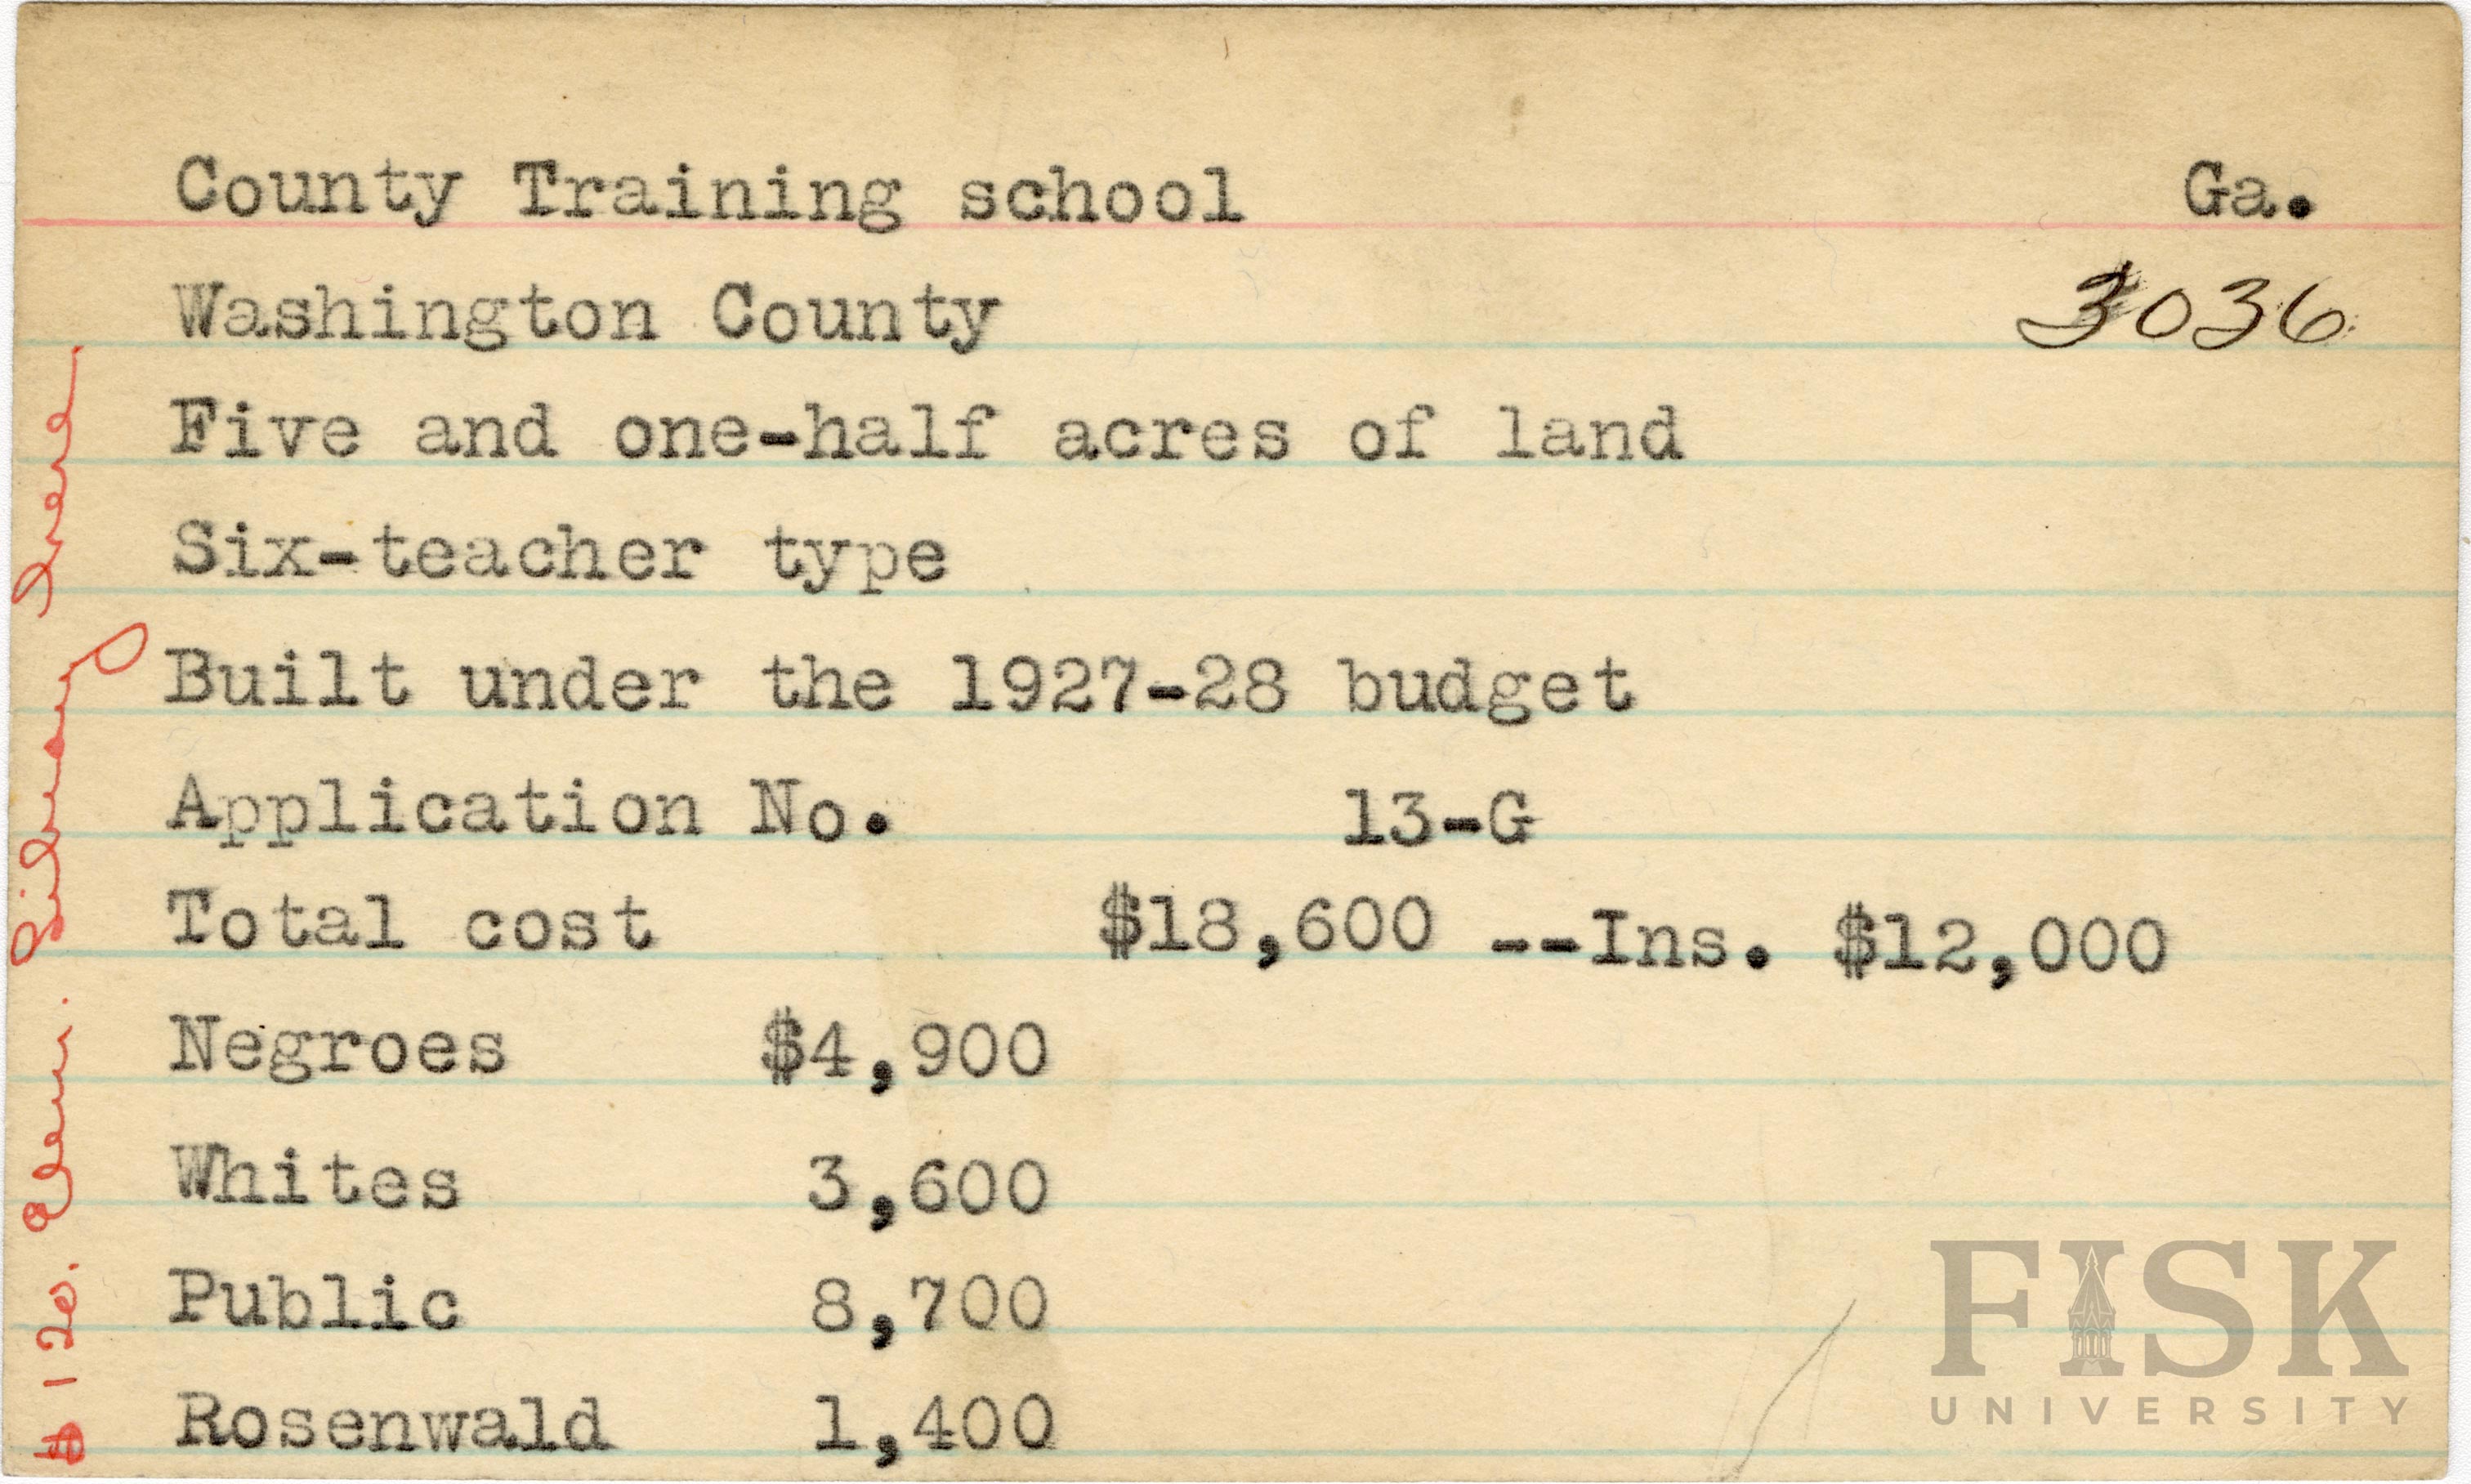 County Training school Ga.
Washington County 3036
Five and one-half acres of land
Six-teacher type
Built under the 1927-28 budget
Application No. 13-G
Total cost $18,600 --Ins. $12,000
Negroes $4,900
Whites 3,600
Public 8,700
Rosenwald 1,400
$120. Elem. Library
FISK
UNIVERSITY